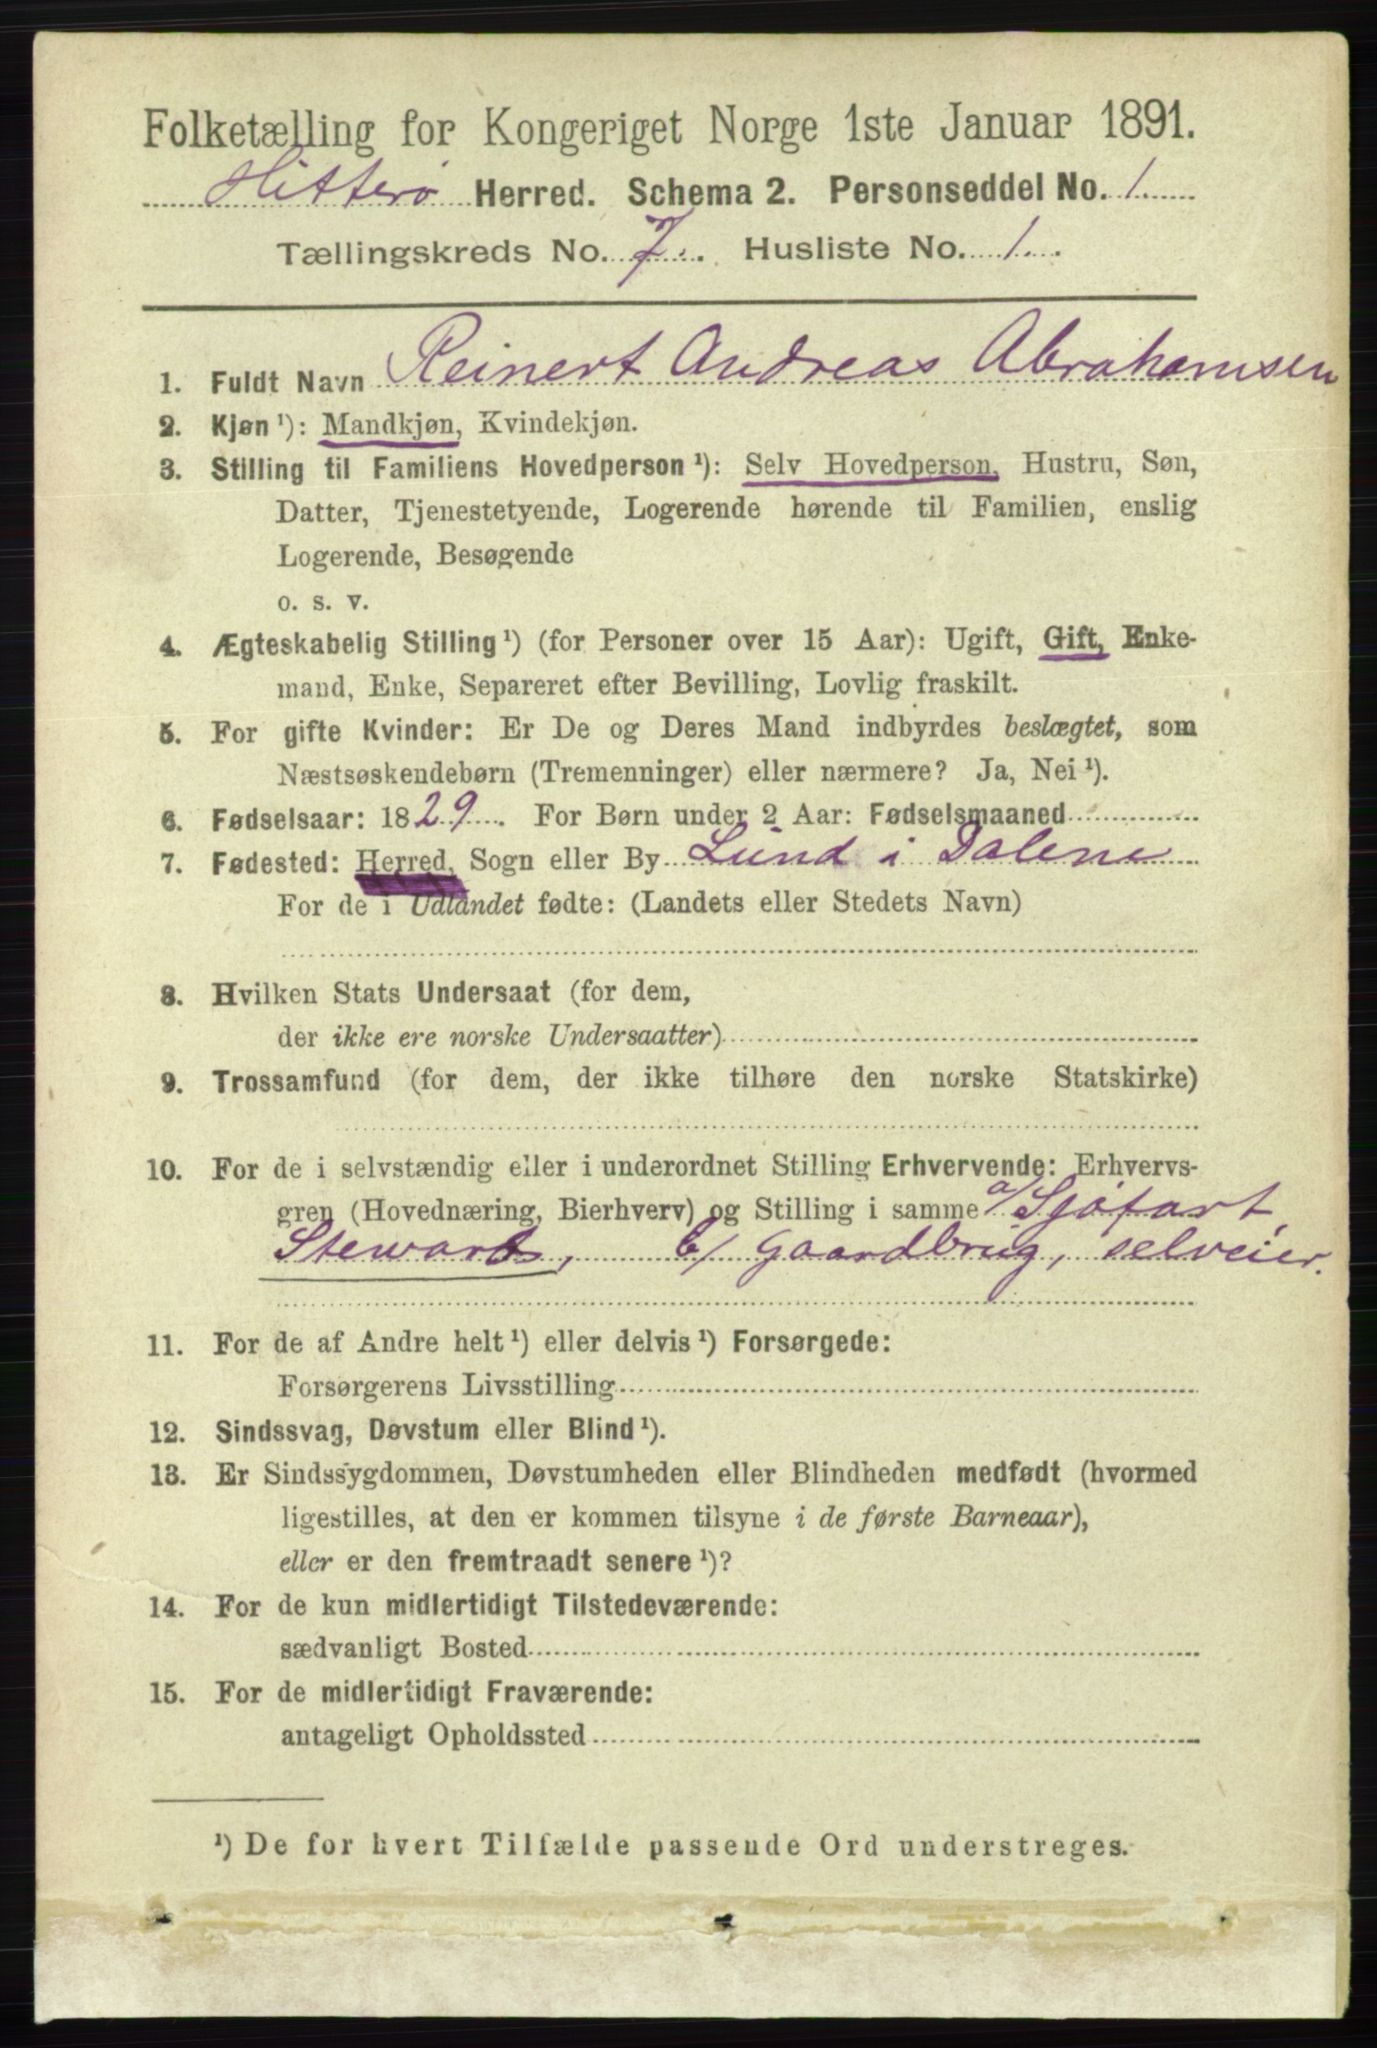 Folketælling for Kongeriget Norge 1ste Januar 1891.
Hitterø Herred. Schema 2. Personseddel No. 1.
Tællingskreds No. 7. Husliste No. 1.
1. Fuldt Navn Reinert Andreas Abrahamsen
2. Kjøn ¹): Mandkjøn, Kvindekjøn.
3. Stilling til Familiens Hovedperson ¹): Selv Hovedperson, Hustru, Søn,
Datter, Tjenestetyende, Logerende hørende til Familien, enslig
Logerende, Besøgende
o. s. v.
4. Ægteskabelig Stilling ¹) (for Personer over 15 Aar): Ugift, Gift, Enke-
mand, Enke, Separeret efter Bevilling, Lovlig fraskilt.
5. For gifte Kvinder: Er De og Deres Mand indbyrdes beslægtet, som
Næstsøskendebørn (Tremenninger) eller nærmere? Ja, Nei ¹).
6. Fødselsaar: 1829. For Børn under 2 Aar: Fødselsmaaned
7. Fødested: Herred, Sogn eller By Lund i Dalene
For de i Udlandet fødte: (Landets eller Stedets Navn)
8. Hvilken Stats Undersaat (for dem,
der ikke ere norske Undersaatter)
9. Trossamfund (for dem, der ikke tilhøre den norske Statskirke)
10. For de i selvstændig eller i underordnet Stilling Erhvervende: Erhvervs-
gren (Hovednæring, Bierhverv) og Stilling i samme a/ Sjøfart,
Steward, b/ Gaardbrug, selveier.
11. For de af Andre helt ¹) eller delvis ¹) Forsørgede:
Forsørgerens Livsstilling
12. Sindssvag, Døvstum eller Blind ¹).
13. Er Sindssygdommen, Døvstumheden eller Blindheden medfødt (hvormed
ligestilles, at den er kommen tilsyne i de første Barneaar),
eller er den fremtraadt senere ¹)?
14. For de kun midlertidigt Tilstedeværende:
sædvanligt Bosted
15. For de midlertidigt Fraværende:
antageligt Opholdssted
¹) De for hvert Tilfælde passende Ord understreges.